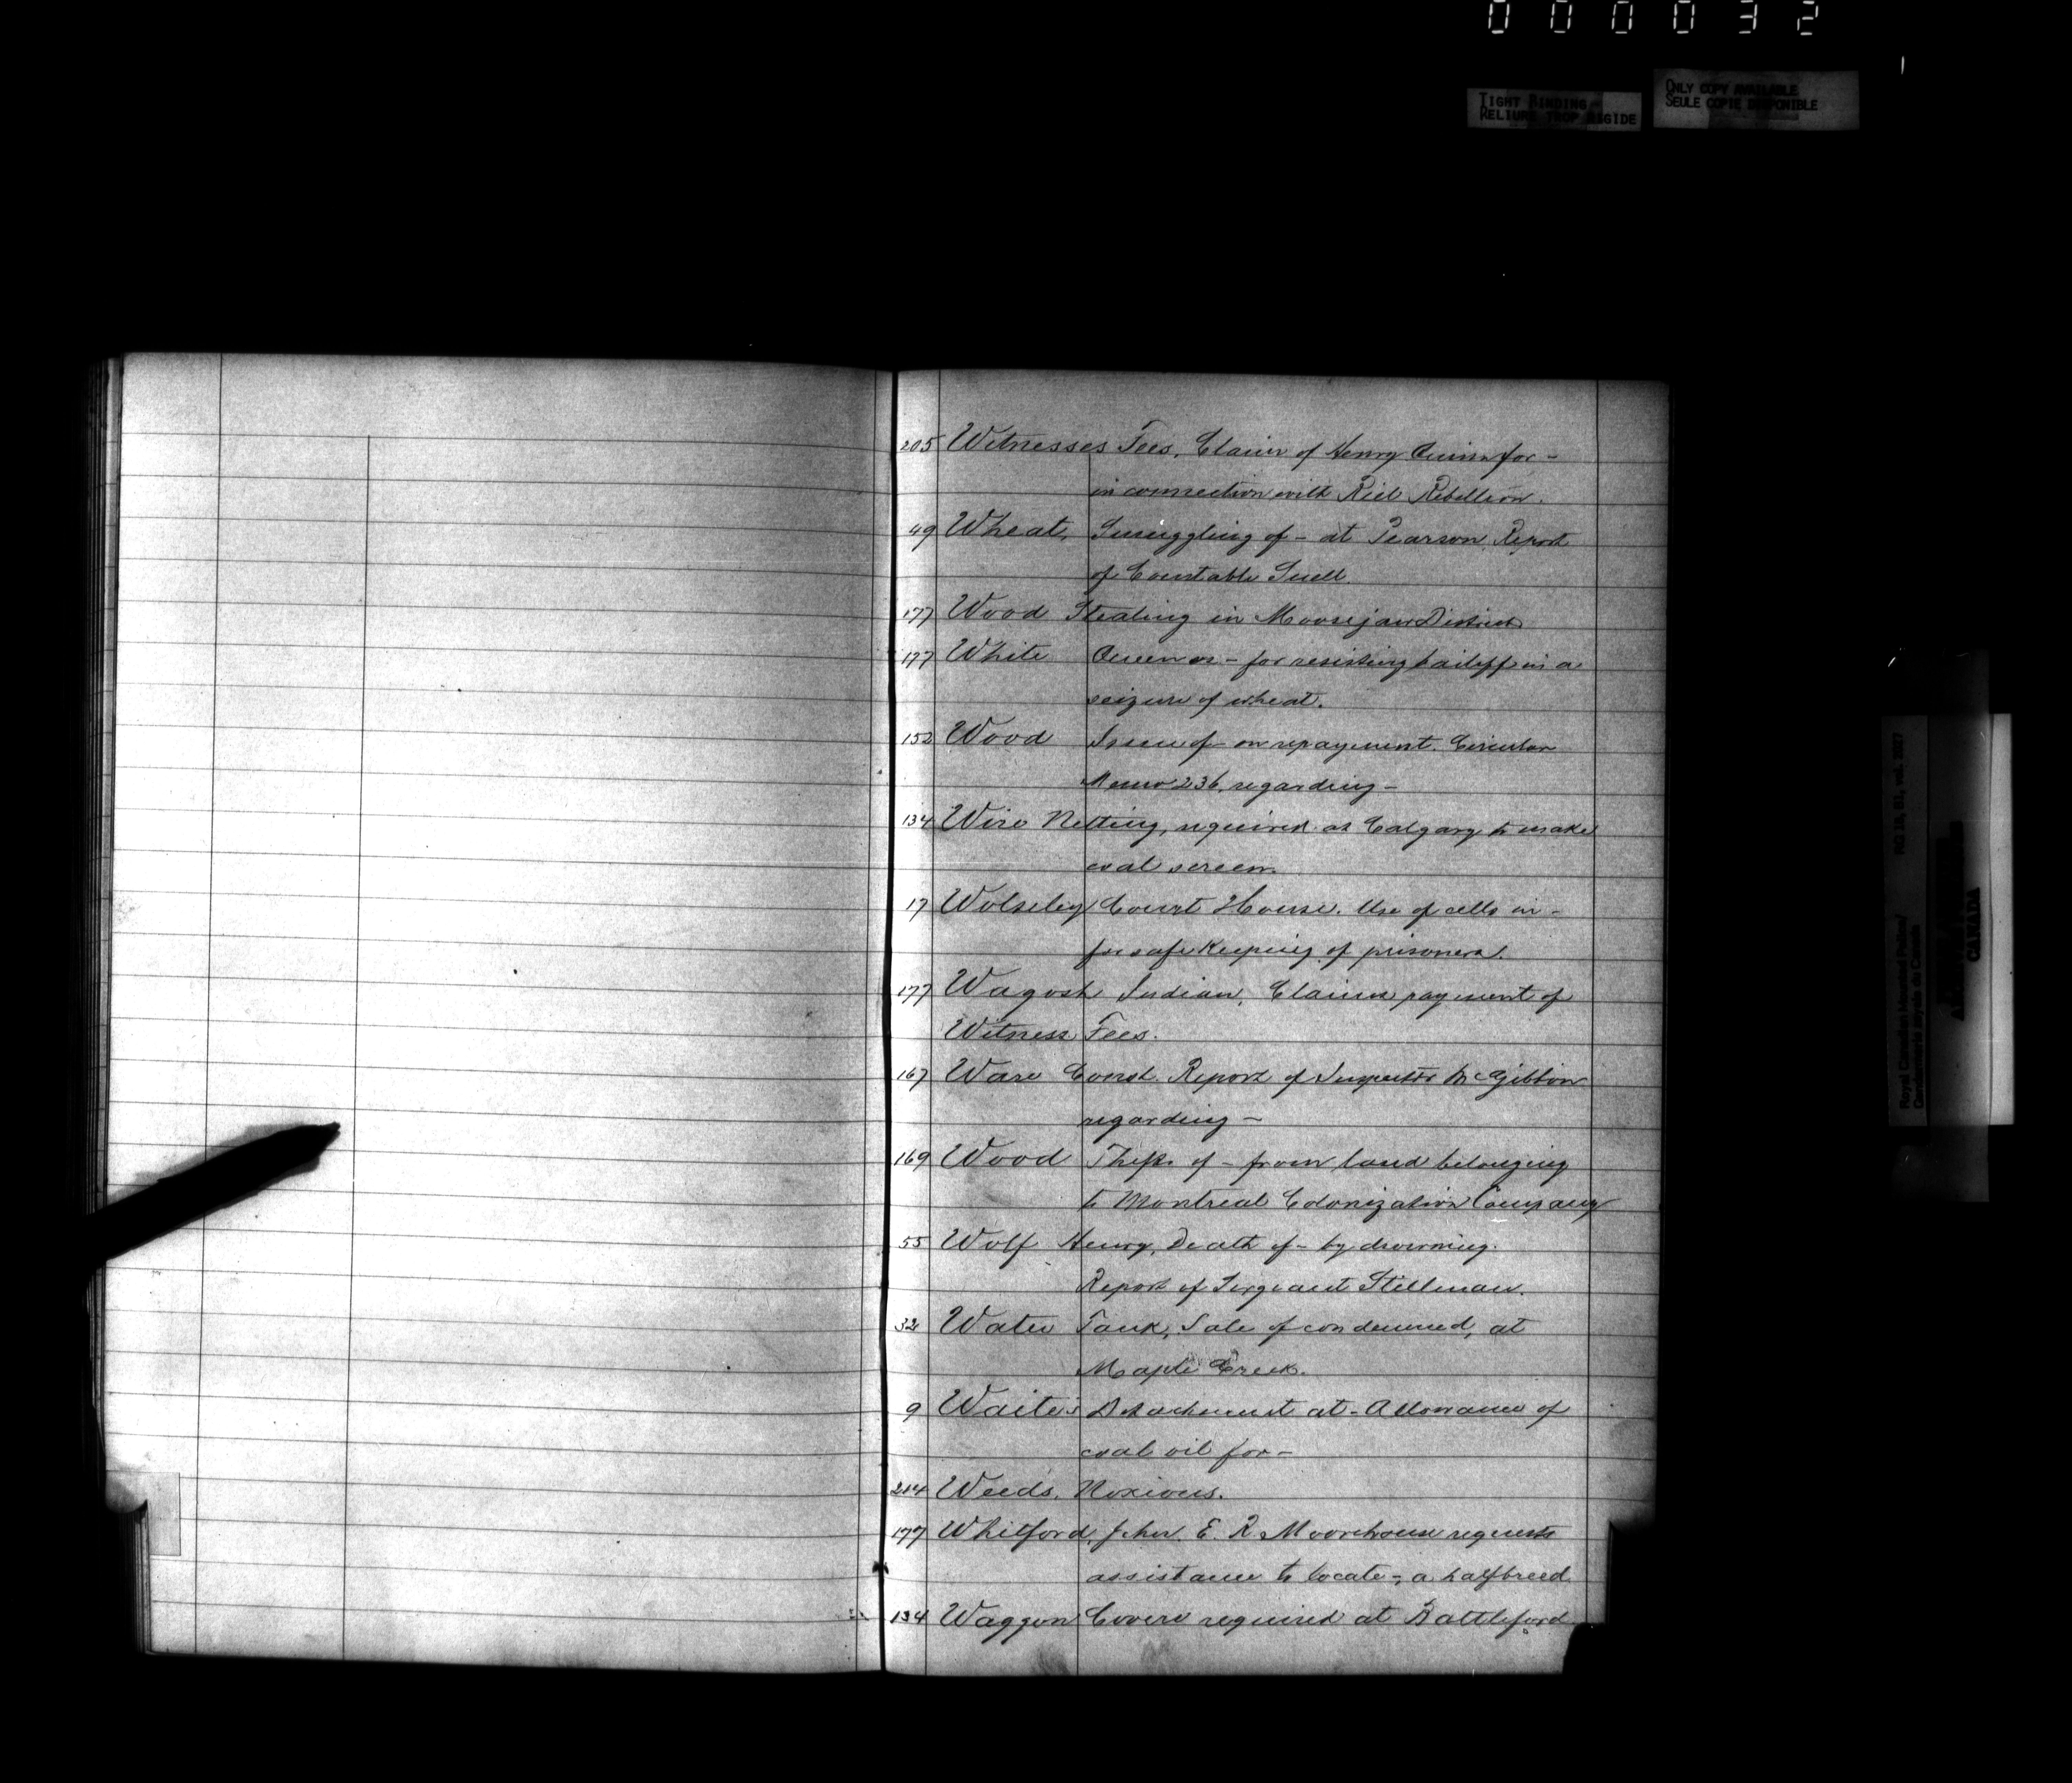 000032
TIGHT BINDING
RELIURE TROP RIGIDE
ONLY COPY AVAILABLE
SEULE COPIE DISPONIBLE
205 Witnesses Fees, Claim of Henry Quinn for -
in connection with Riel Rebellion.
49 Wheat, Smuggling of - at Pearson Report
of Constable Snell.
177 Wood Stealing in Moosejaw District
177 White Queen vs - for resisting bailiff in a
seizure of wheat.
152 Wood Issue of - on repayment. Circular
Memo 236, regarding -
134 Wire Netting, required at Calgary to make
coal screen.
17 Wolseley Court House. Use of cells in -
for safe keeping of prisoners.
177 Wagosh Indian, Claims payment of
Witness Fees.
167 Ware Const. Report of Inspector McGibbon
regarding -
169 Wood Theft of - from land belonging
to Montreal Colonization Company
55 Wolf Henry, Death of - by drowning.
Report of Sergeant Stillman.
32 Water Tank, Sale of condemned, at
Maple Creek.
9 Waite's Detachment at - Allowance of
coal oil for -
214 Weeds, Noxious.
177 Whitford, John. E. R. Moorhouse requests
assistance to locate -, a halfbreed
134 Waggon Covers required at Battleford
Royal Canadian Mounted Police/
Gendarmerie royale du Canada
RG 18, B1, vol. 2027
CANADA